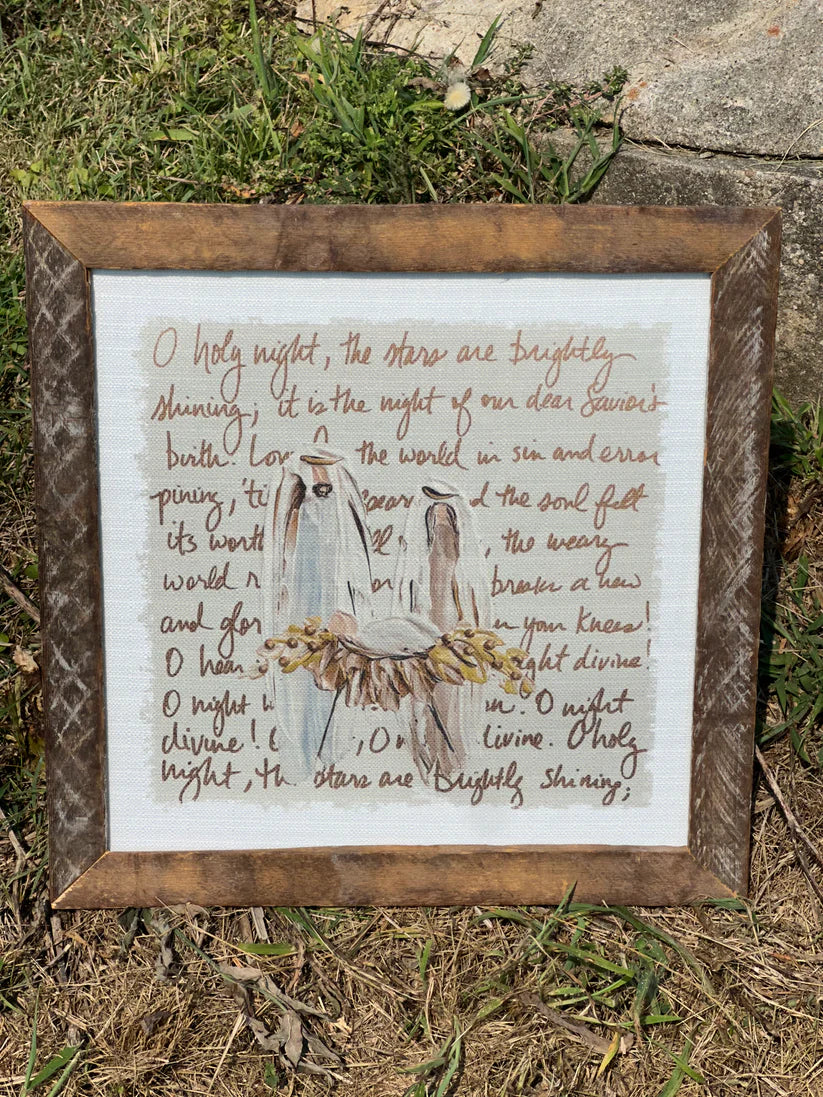 O holy night, the stars are brightly
shining; it is the night of our dear Savior's
birth. Lon the world in sin and error
pining, 'ti pear d the soul felt
its worth ll , the weary
world r or breaks a new
and glor n your knees!
O hear ight divine!
O night n. O night
divine! , O n livine. O holy
night, th stars are brightly shining;